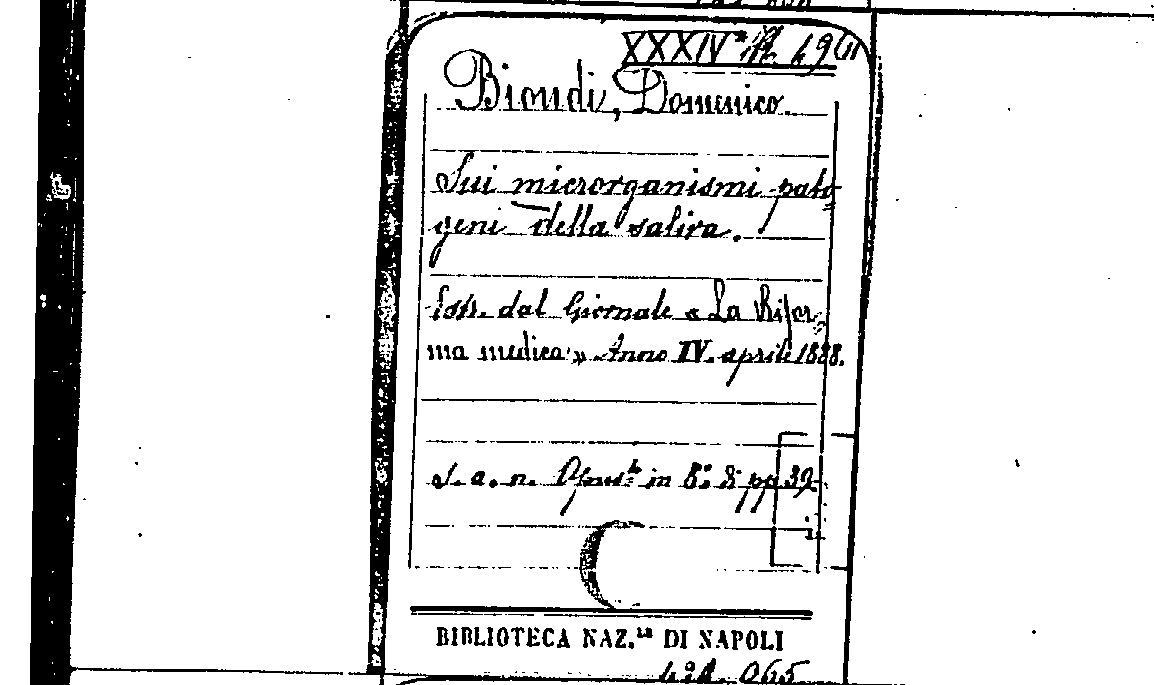 XXXIV
Biondi, Domenico.
Sui microrganismi pato
geni della saliva.
Estr. dal Giornale « La Rifor
ma medica » Anno IV. aprile 1888.
s. a. n. in 8º di pp 32
BIBLIOTECA NAZ.LE DI NAPOLI